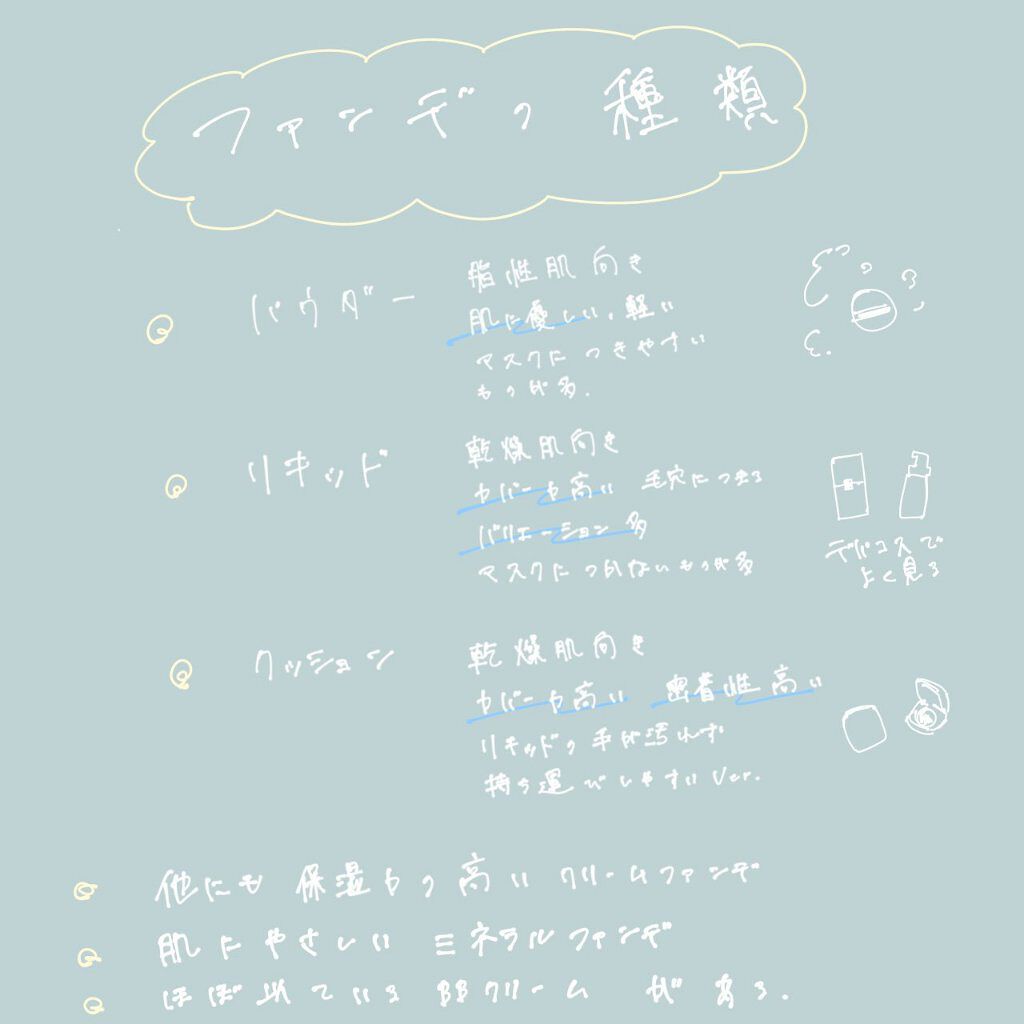 ファンデの種類
パウダー
脂性肌向き
肌に優しい、軽い
マスクにつきやすい
ものが多。
リキッド
乾燥肌向き
カバー力高い 毛穴につまる
バリエーション多
マスクにつかないものが多
デパコスで
よく見る
クッション
乾燥肌向き
カバー力高い 密着性高い
リキッドの手が汚れず
持ち運びしやすいVer.
他にも 保湿力の高い クリームファンデ
肌にやさしい ミネラルファンデ
ほぼ似ている BBクリーム がある。